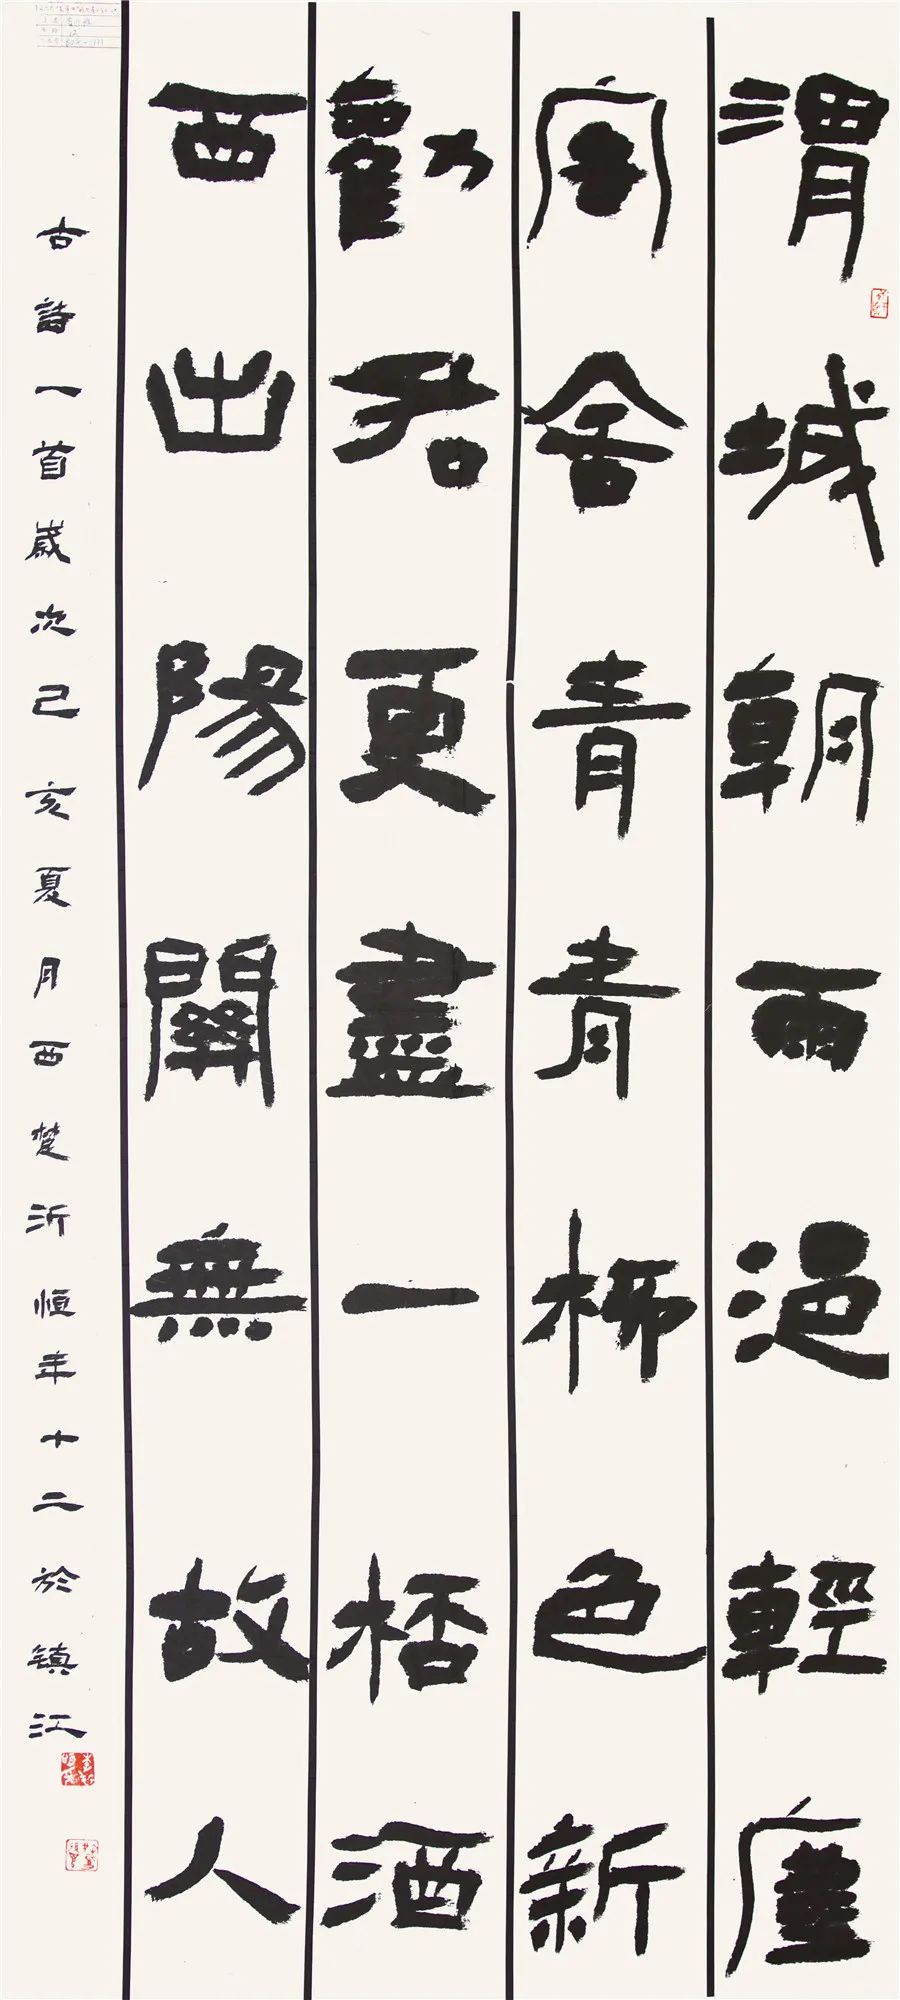 渭城朝雨浥輕塵
客舍青青柳色新
勸君更盡一桮酒
西出陽關無故人
古詩一首歲次己亥夏月西楚沂恒年十二於鎮江